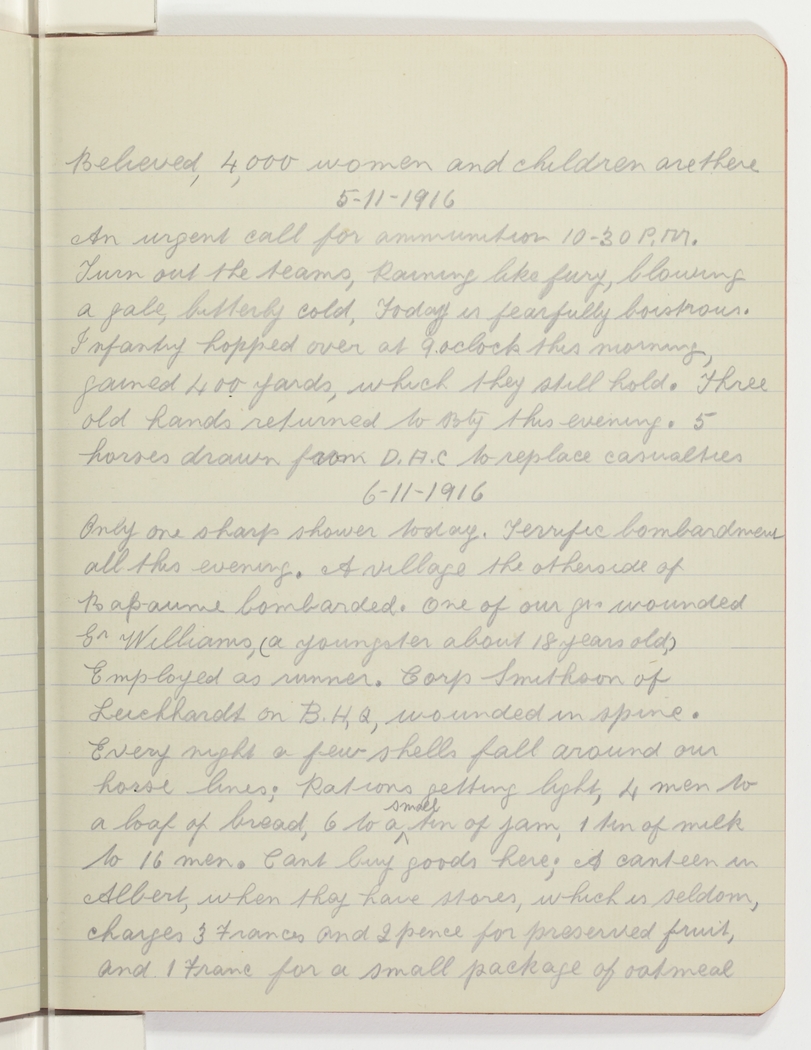 Believed, 4,000 women and children are there
5-11-1916
An urgent call for ammunition 10-30 P.M.
Turn out the teams, Raining like fury, blowing
a gale, bitterly cold, Today is fearfully boistrous.
Infantry hopped over at 9.oclock this morning,
gained 400 yards, which they still hold. Three
old hands returned to Bty this evening. 5
horses drawn from D.A.C to replace casualties
6-11-1916
Only one sharp shower today. Terrific bombardment
all this evening. A village the otherside of
Bapaume bombarded. One of our grs wounded
Gr Williams, (a youngster about 18 years old,)
Employed as runner. Corp Smithson of
Leichhardt on B.H,Q, wounded in spine.
Every night a few shells fall around our
horse lines; Rations getting light, 4 men to
a loaf of bread, 6 to a small tin of jam, 1 tin of milk
to 16 men. Cant buy goods here; A canteen in
Albert, when they have stores, which is seldom,
charges 3 Francs and 2 pence for preserved fruit,
and 1 Franc for a small package of oatmeal